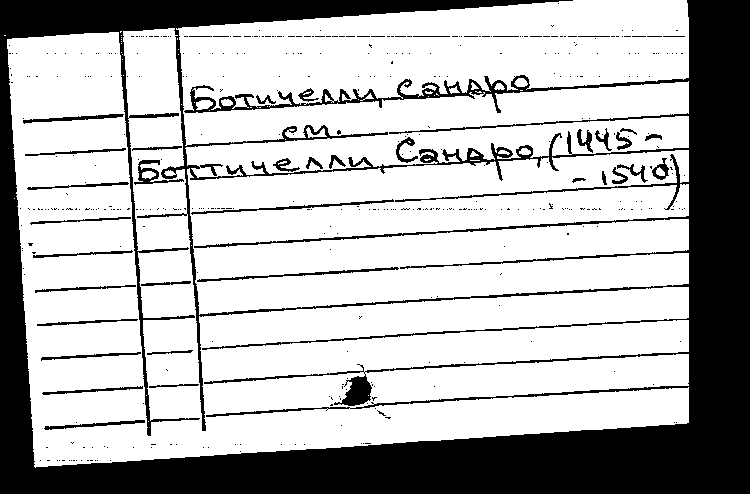 Ботичелли, Сандро
см.
Боттичелли, Сандро, (1445 -
- 1540)